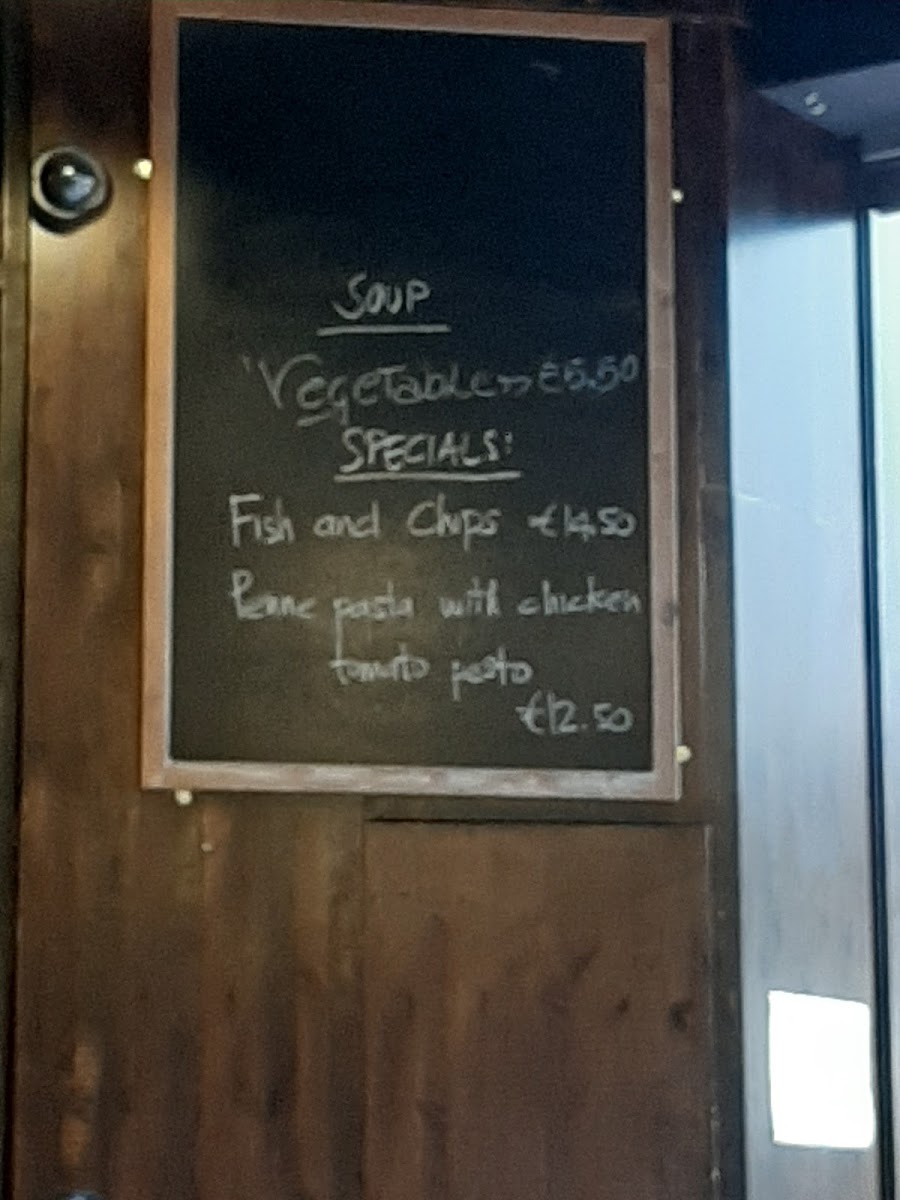 SOUP
"Vegetable" €5.50
SPECIALS:
Fish and Chips €14.50
Penne pasta with chicken
tomato pesto
€12.50